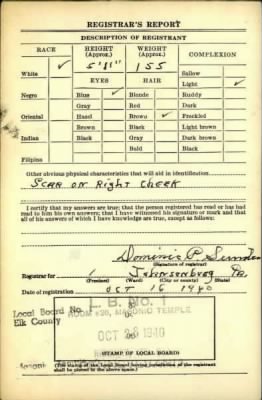 REGISTRAR'S REPORT
DESCRIPTION OF REGISTRANT
RACE HEIGHT (Approx.) WEIGHT (Approx.) COMPLEXION
White ✓ 5'11" 155 Sallow
EYES HAIR Light ✓
Negro Blue ✓ Blonde Ruddy
Gray Red Dark
Oriental Hazel Brown ✓ Freckled
Brown Black Light brown
Indian Black Gray Dark brown
Bald Black
Filipino
Other obvious physical characteristics that will aid in identification
Scar on Right Cheek
I certify that my answers are true; that the person registered has read or has
had read to him his own answers; that I have witnessed his signature or mark and that
all of his answers of which I have knowledge are true, except as follows:
Dominic P.
(Signature of registrar)
Registrar for 1 Johnsonburg Pa.
(Precinct) (Ward) (City or county) (State)
Date of registration Oct 16 1940
Local Board No. L. B. No. 1
Elk County ROOM #20, MASONIC TEMPLE
OCT 1940
(STAMP OF LOCAL BOARD)
(The stamp of the Local Board having jurisdiction of the registrant
shall be placed in the above space.)